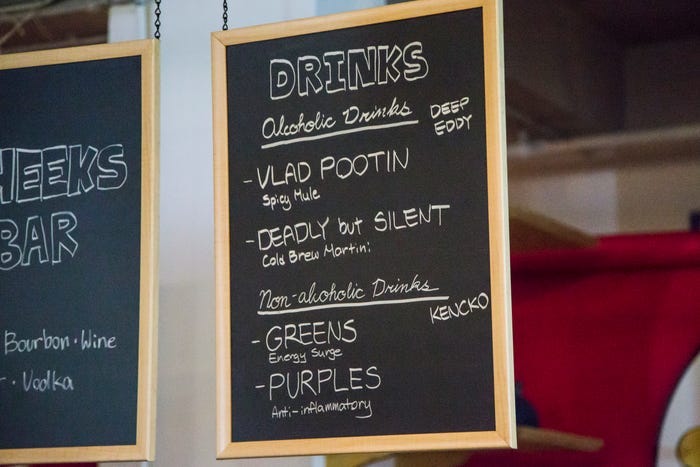 HEEKS
BAR
Bourbon · Wine
· Vodka
DRINKS
Alcoholic Drinks
DEEP
EDDY
- VLAD POOTIN
Spicy Mule
- DEADLY but SILENT
Cold Brew Martini
Non-alcoholic Drinks
KENCKO
- GREENS
Energy Surge
- PURPLES
Anti-inflammatory